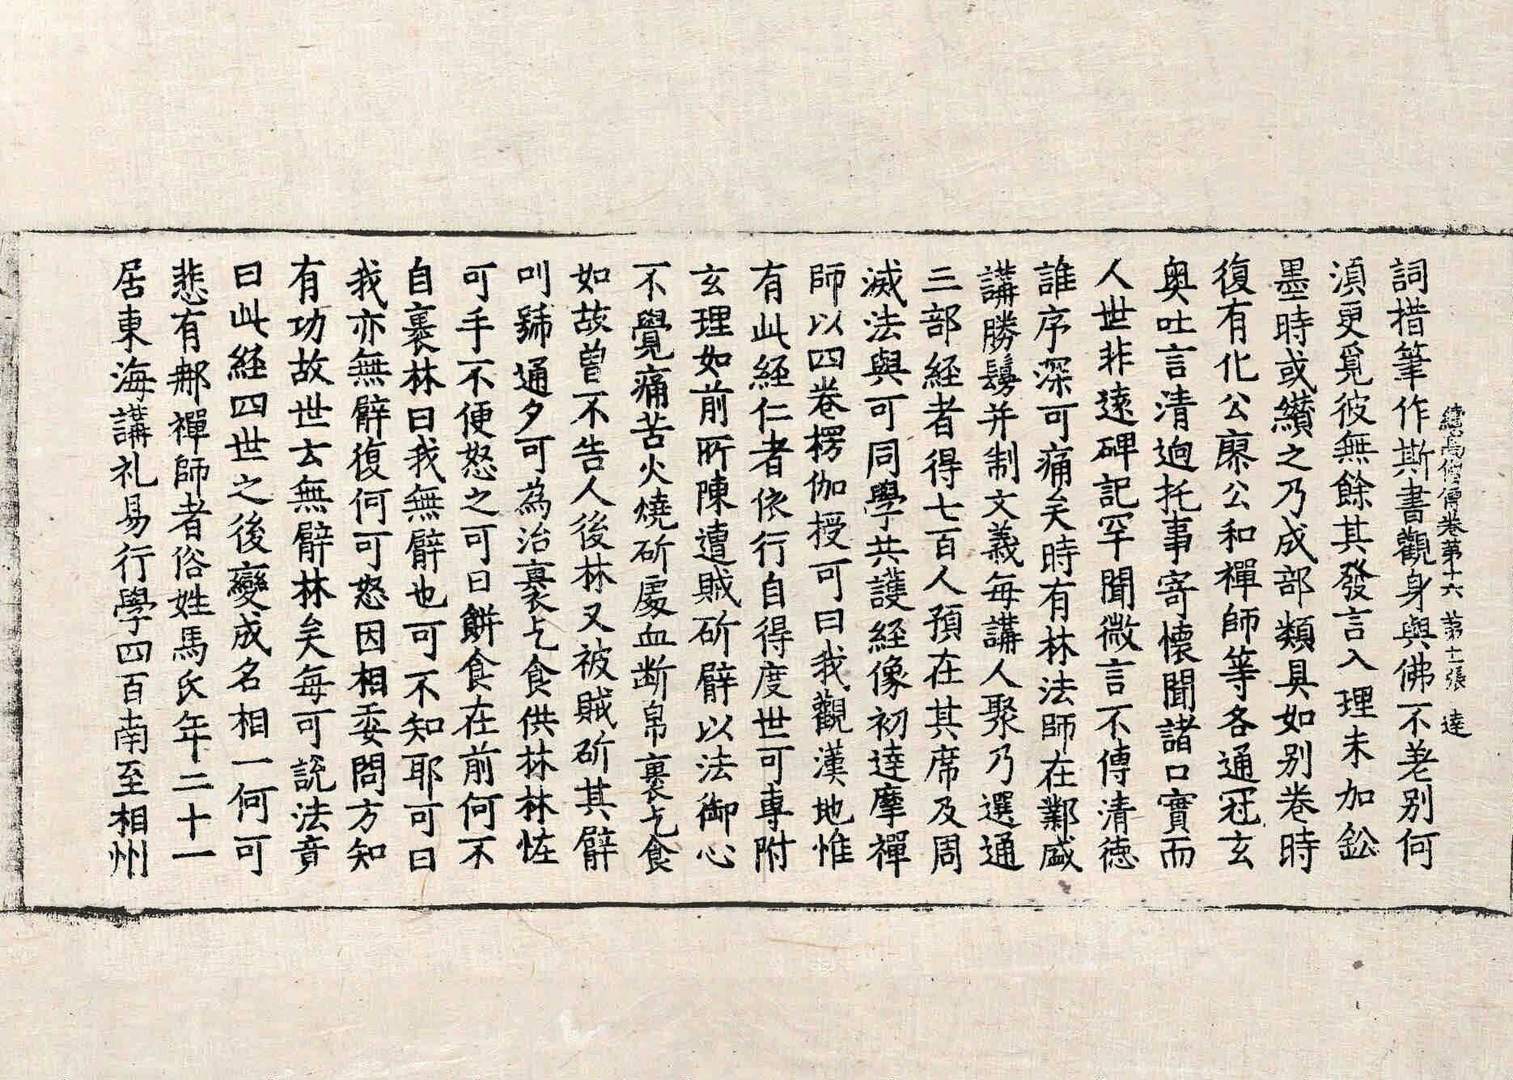 續高僧傳卷第十六 第十一張 達
詞措筆作斯書觀身與佛不差別何
湏更覓彼無餘其發言入理未加鈆
墨時或纘之乃成部類具如别卷時
復有化公廖公和禪師等各通冠玄
奥吐言清逈托事寄懷聞諸口實而
人世非逺碑記罕聞微言不傳清德
誰序深可痛矣時有林法師在鄴盛
講勝鬘并制文義每講人聚乃選通
三部經者得七百人預在其席及周
滅法與可同學共護經像初達摩禪
師以四卷楞伽授可曰我觀漢地惟
有此經仁者依行自得度世可專附
玄理如前所陳遭賊斫臂以法御心
不覺痛苦火燒斫處血断帛裹乞食
如故曾不告人後林又被賊斫其臂
叫號通夕可為治裹乞食供林林恠
可手不便怒之可曰餅食在前何不
自裹林曰我無臂也可不知耶可曰
我亦無臂復何可怒因相委問方知
有功故世云無臂林矣每可說法竟
曰此經四世之後變成名相一何可
悲有那禪師者俗姓馬氏年二十一
居東海講礼易行學四百南至相州